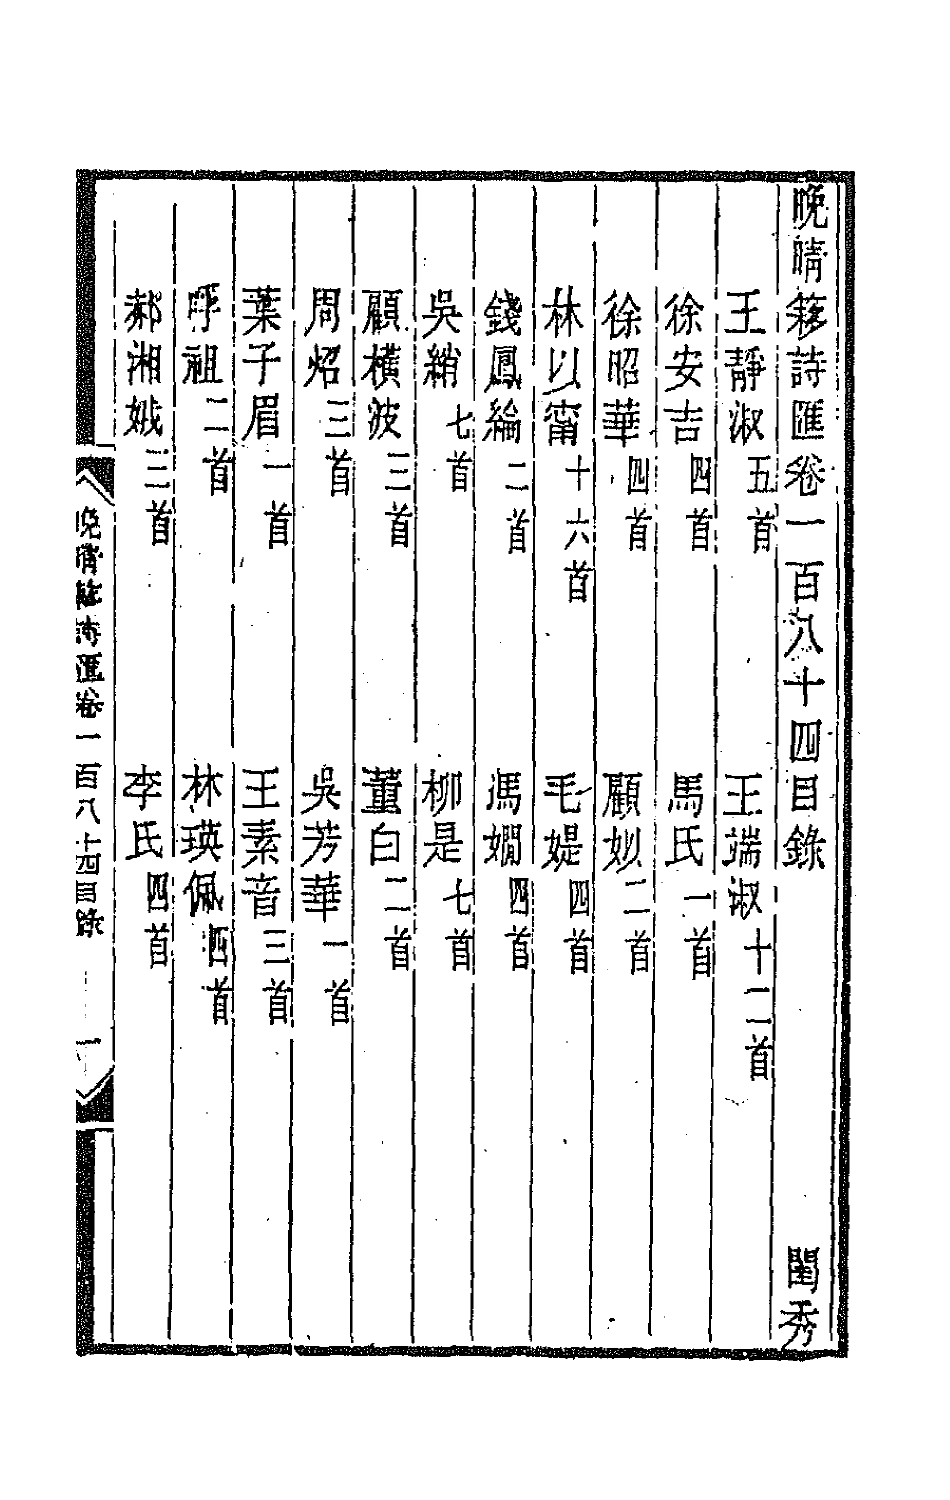 晚晴簃詩匯卷一百八十四目錄 閨秀
王靜淑五首 王端淑十二首
徐安吉四首 馬氏一首
徐昭華四首 顧姒二首
林以甯十六首 毛媞四首
錢鳳綸二首 馮嫺四首
吳綃七首 柳是七首
顧橫波三首 董白二首
周炤三首 吳芳華一首
葉子眉一首 王素音三首
呼祖二首 林瑛佩四首
郝湘娥三首 李氏四首
晚晴簃詩匯卷一百八十四目錄 一